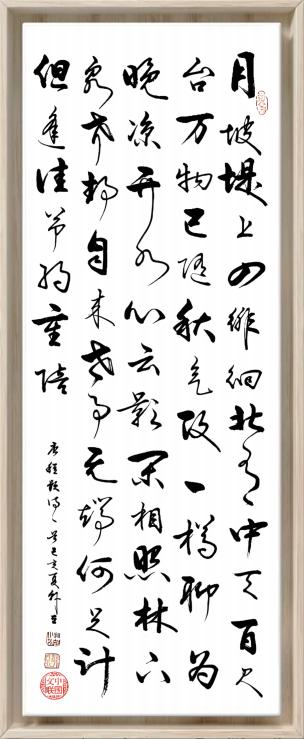 月坡堤上四徘徊北有中天百尺
台万物已随秋气改一樽聊为
晚凉开水心云影闲相照林下
泉声静自来世事无端何足计
但逢佳节约重陪
唐程颢诗一首己亥夏